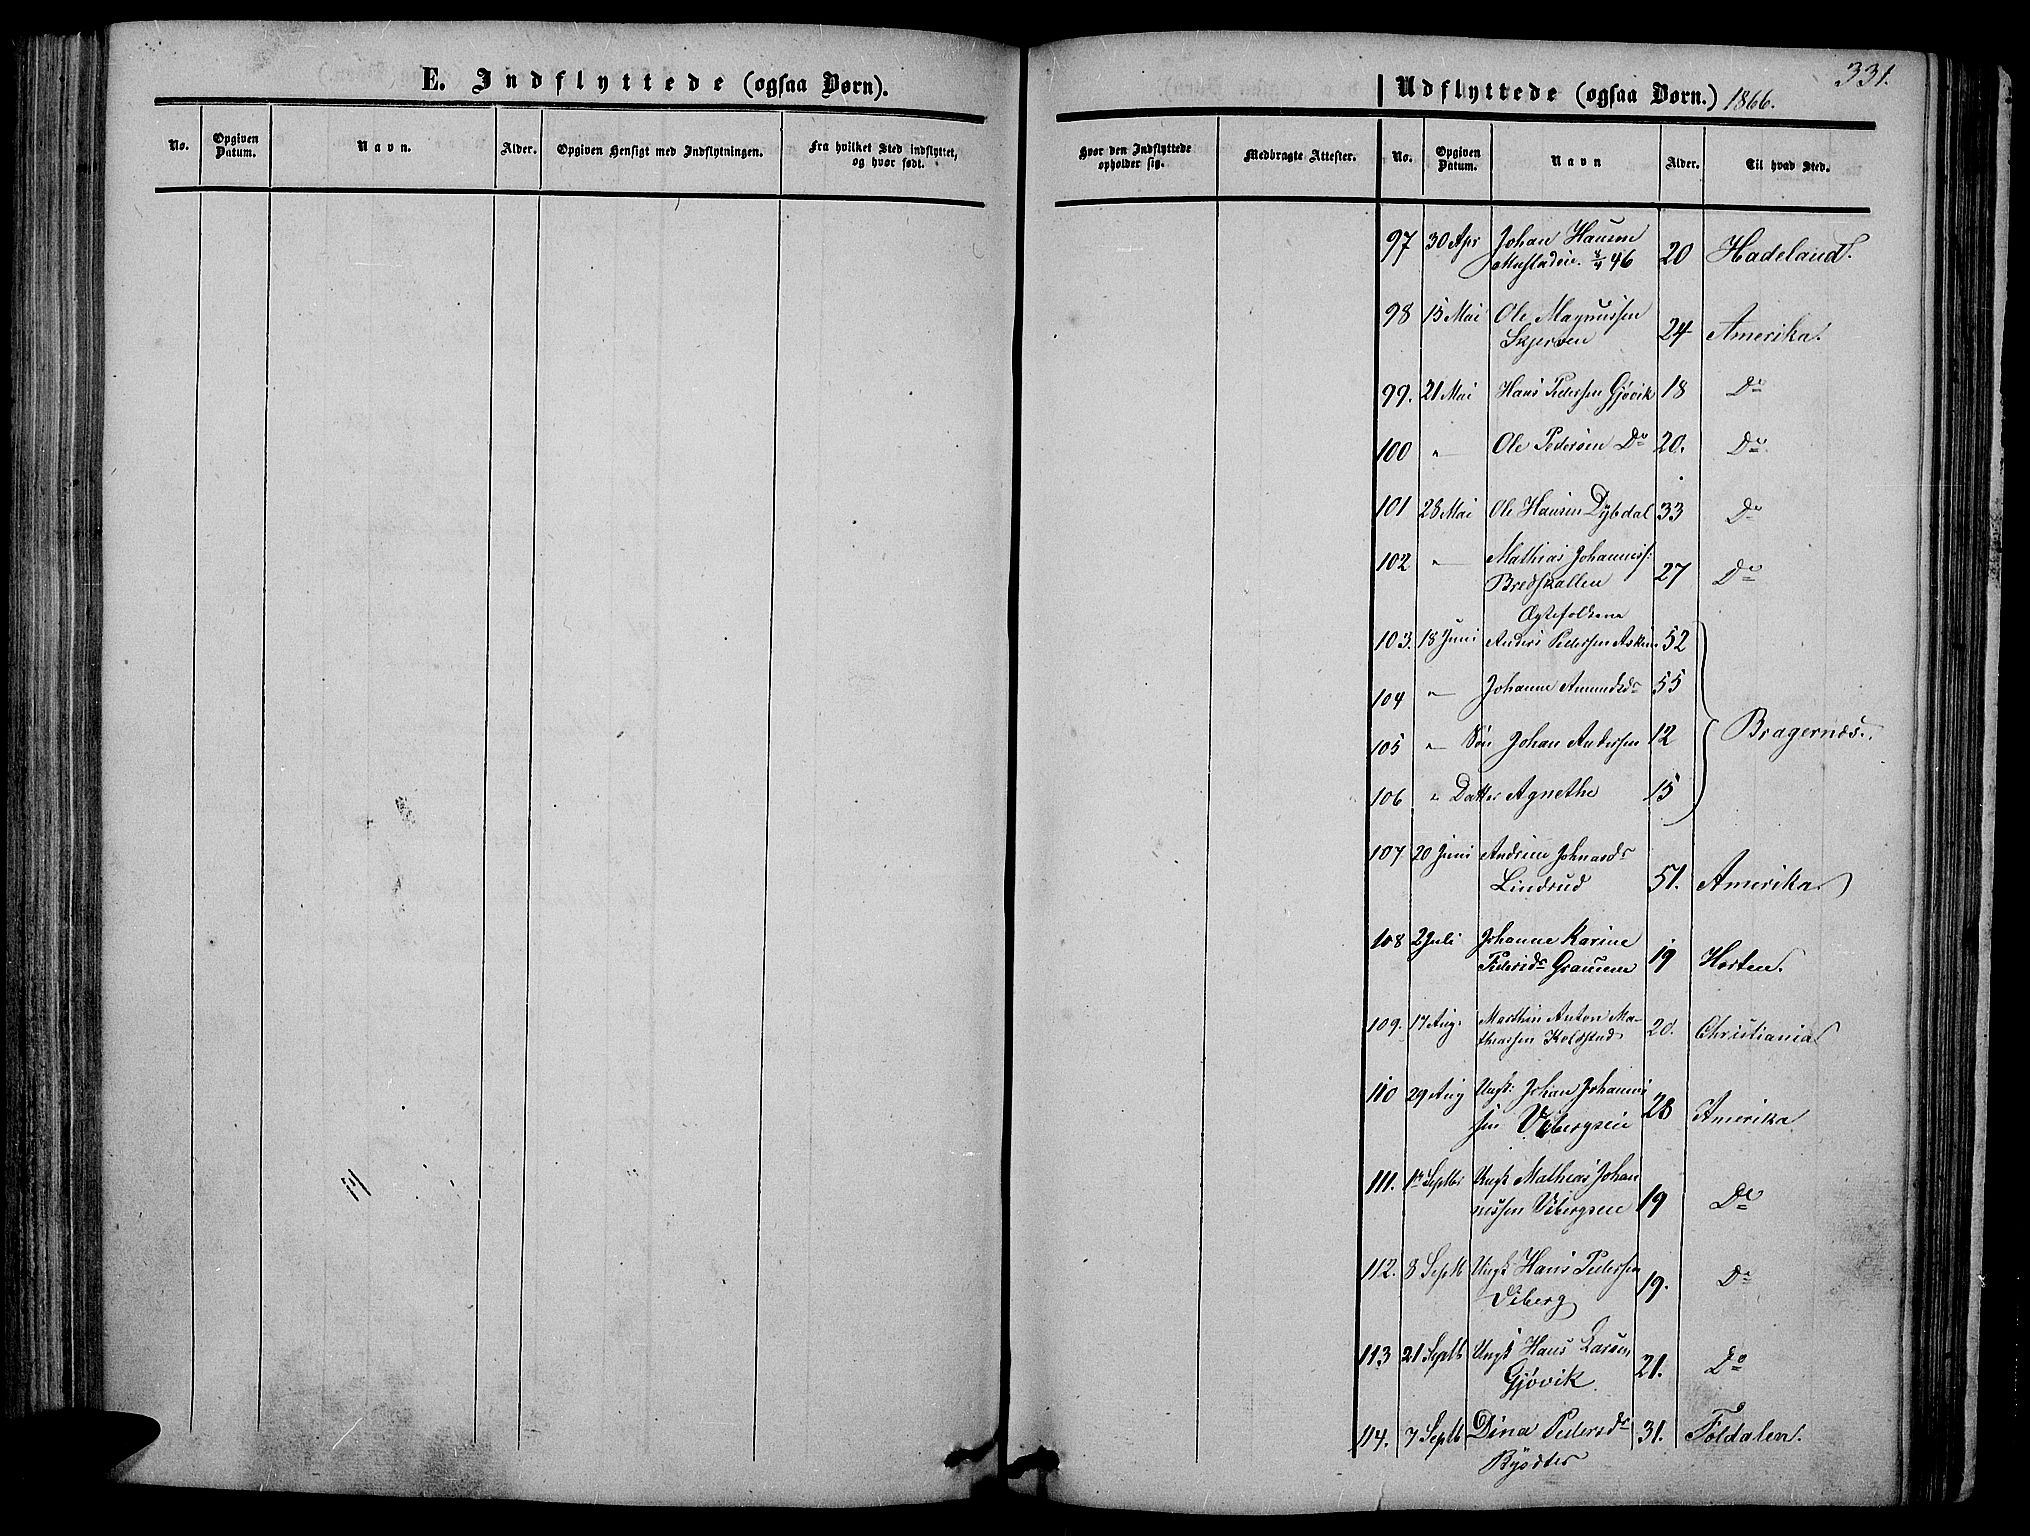 E. Indflyttede (ogsaa Børn).
No.
Opgiven Datum.
Navn.
Alder.
Opgiven Hensigt med Indflytningen.
Fra hvilket Sted indflyttet, og hvor født.
331.
Udflyttede (ogsaa Børn.) 1866.
Hvor den Indflyttede opholder sig.
Medbragte Attester.
No.
Opgiven Datum.
Navn
Alder.
Til hvad Sted.
97 30 Apr Johan Hansen
46 20 Hadeland.
98 15 Mai Ole Magnussen
Skjerven 24 Amerika.
99. 21 Mai Hans Pedersen Gjøvik 18 Do
100 " Ole Pedersen Do 20. Do
101 28 Mai Ole Hansen Dybdal 33 Do
102 " Mathias Johanness:
Bredskallen 27 Do
Ægtefolkene
103. 18 Juni Anders Pedersen 52
104 " Johanne Amundsdr 55
Bragernæs.
105 " Søn Johan Andersen 12
106 " Datter Agnethe 15
107 20 Juni Andrine Johnsdr
Lindrud 51. Amerika
108 2 Juli Johanne Karine
Pedersdr 19 Horten.
109. 17 Aug. Marthin Anton Ma-
thiassen Koldstad 20. Christiania
110 29 Aug Ungk: Johan Johannes
sen Vibergseie 28 Amerika
111. 1e Septbr Ungk Mathias Johan
nessen Vibergseie 19 Do
112. 8 Septb Ungk Hans Pedersen
Viberg 19. Do
113 21 Septb Ungk Hans Larsen
Gjøvik 21. Do
114. 7 Septb Dina Pedersdr 31. Foldalen.